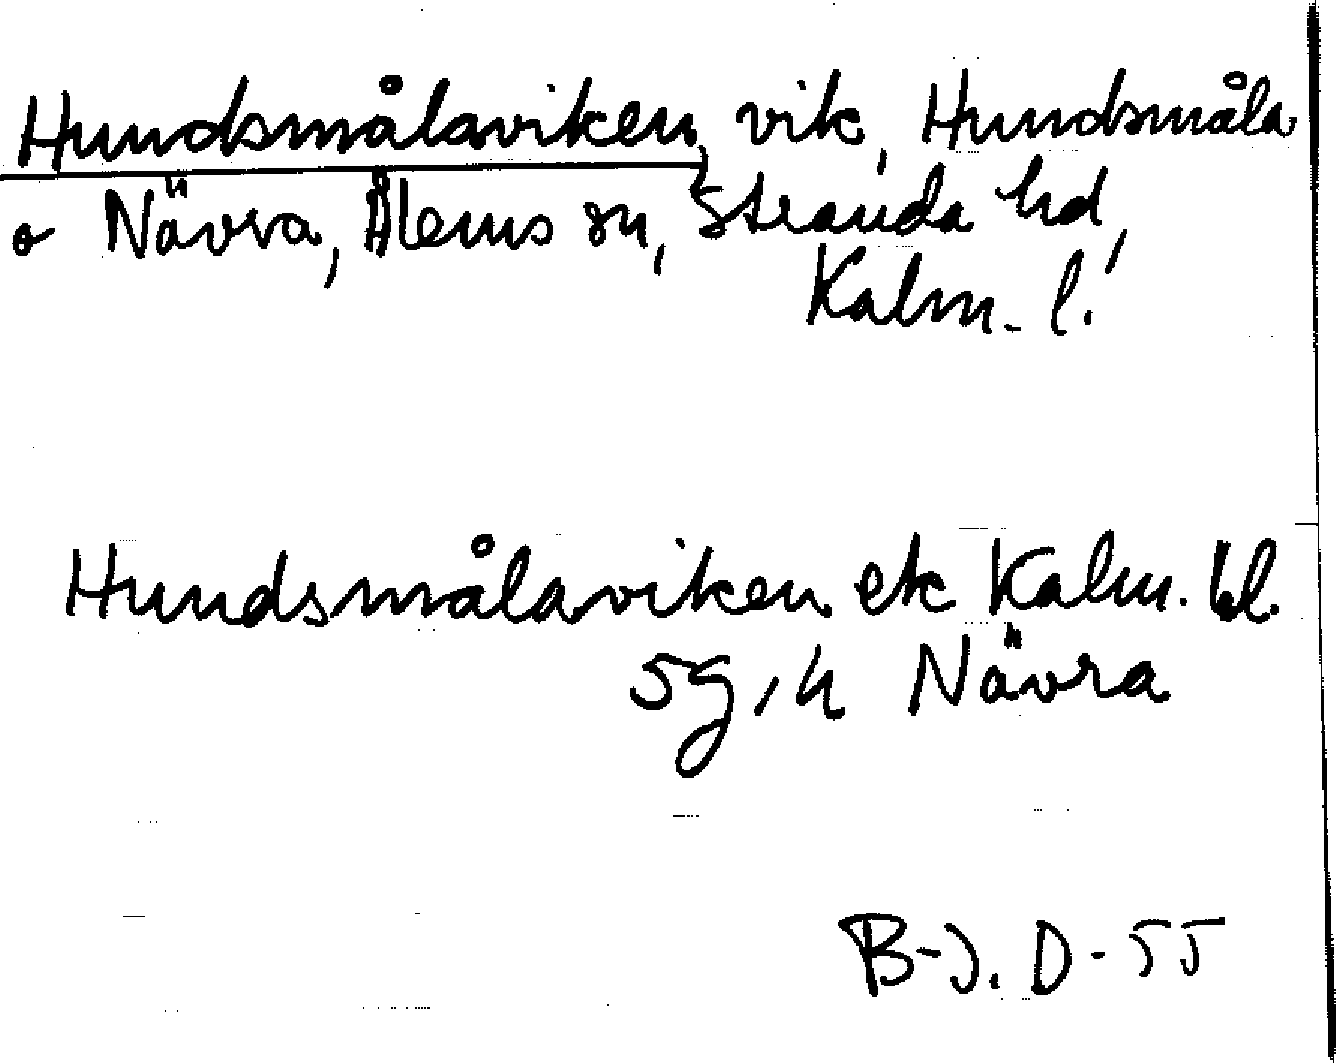 Hundsmålaviken, vik, Hundsmåla
o Nävra, Ålems sn, Stranda hd,
Kalm. l.
Hundsmålaviken ek Kalm. bl.
5g, h Nävra
B-J. D-55